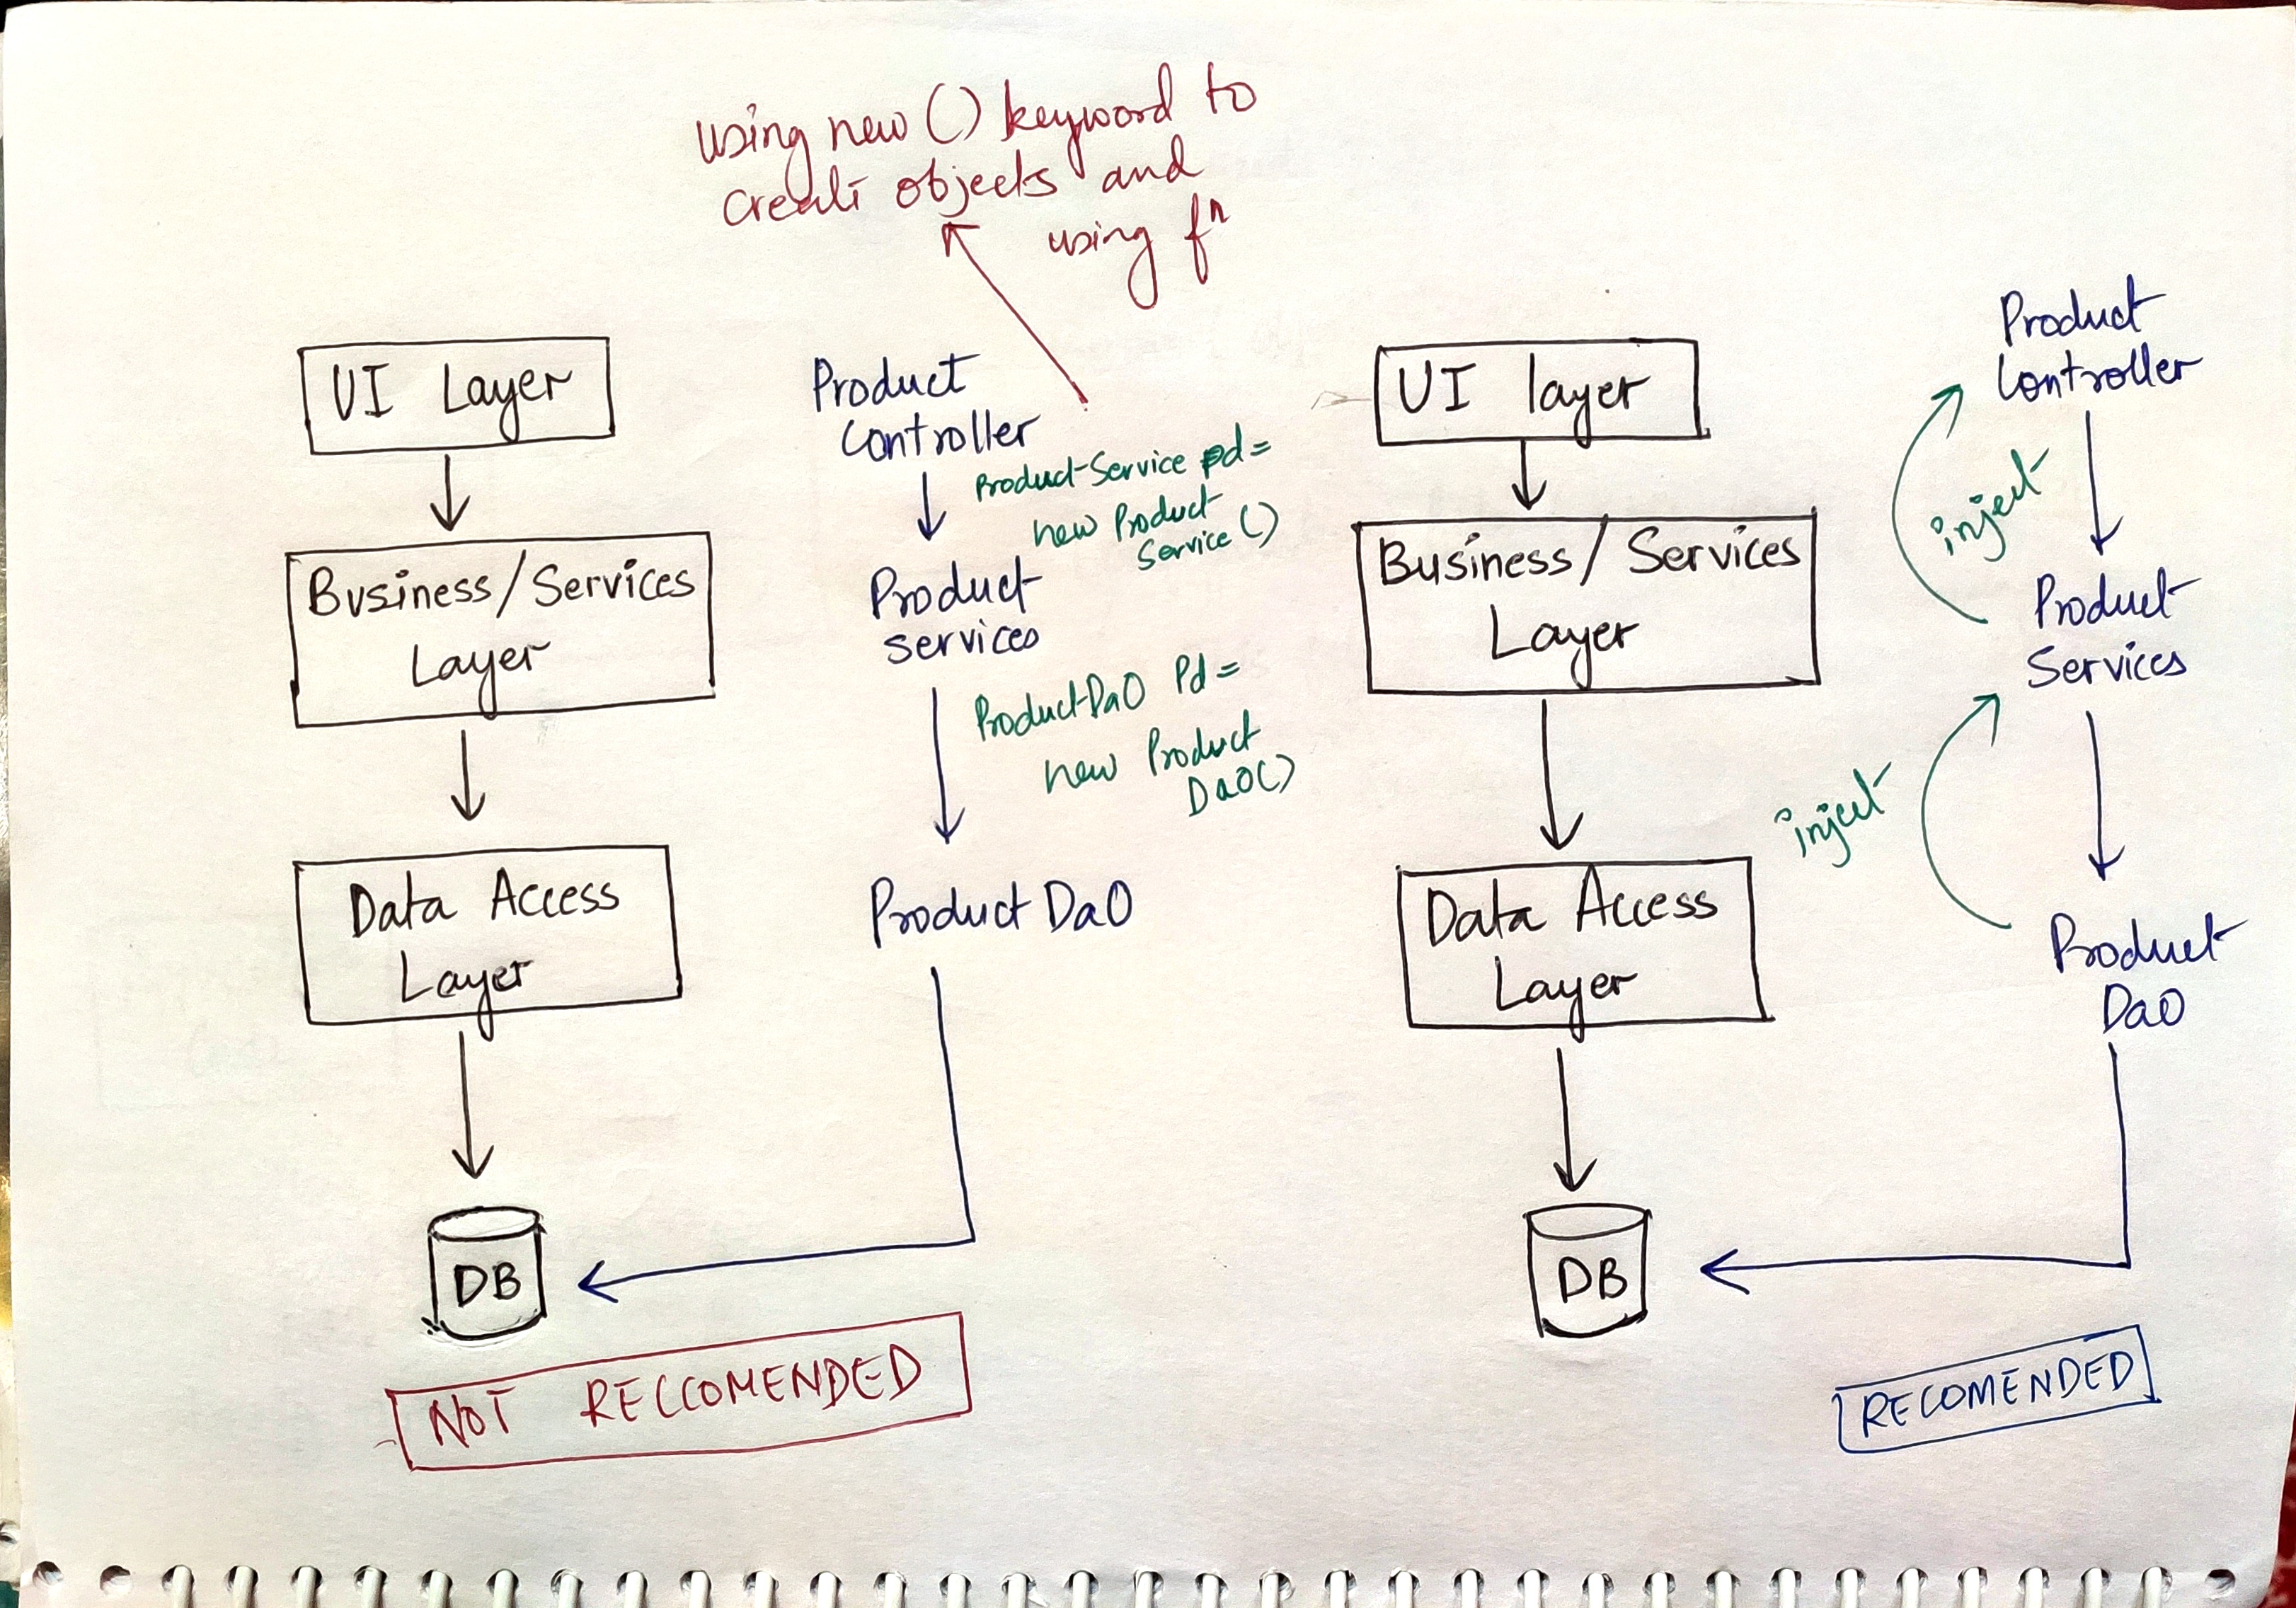 using new () keyword to
create objects and
using fⁿ
UI Layer
Business/Services
Layer
Data Access
Layer
DB
Product
Controller
Product Service pd =
new Product
Service ()
Product
services
Product DaO Pd =
new Product
DaO()
Product DaO
NOT RECCOMENDED
UI layer
Business/ Services
Layer
Data Access
Layer
DB
Product
Controller
inject
Product
Services
inject
Product
DaO
RECOMENDED